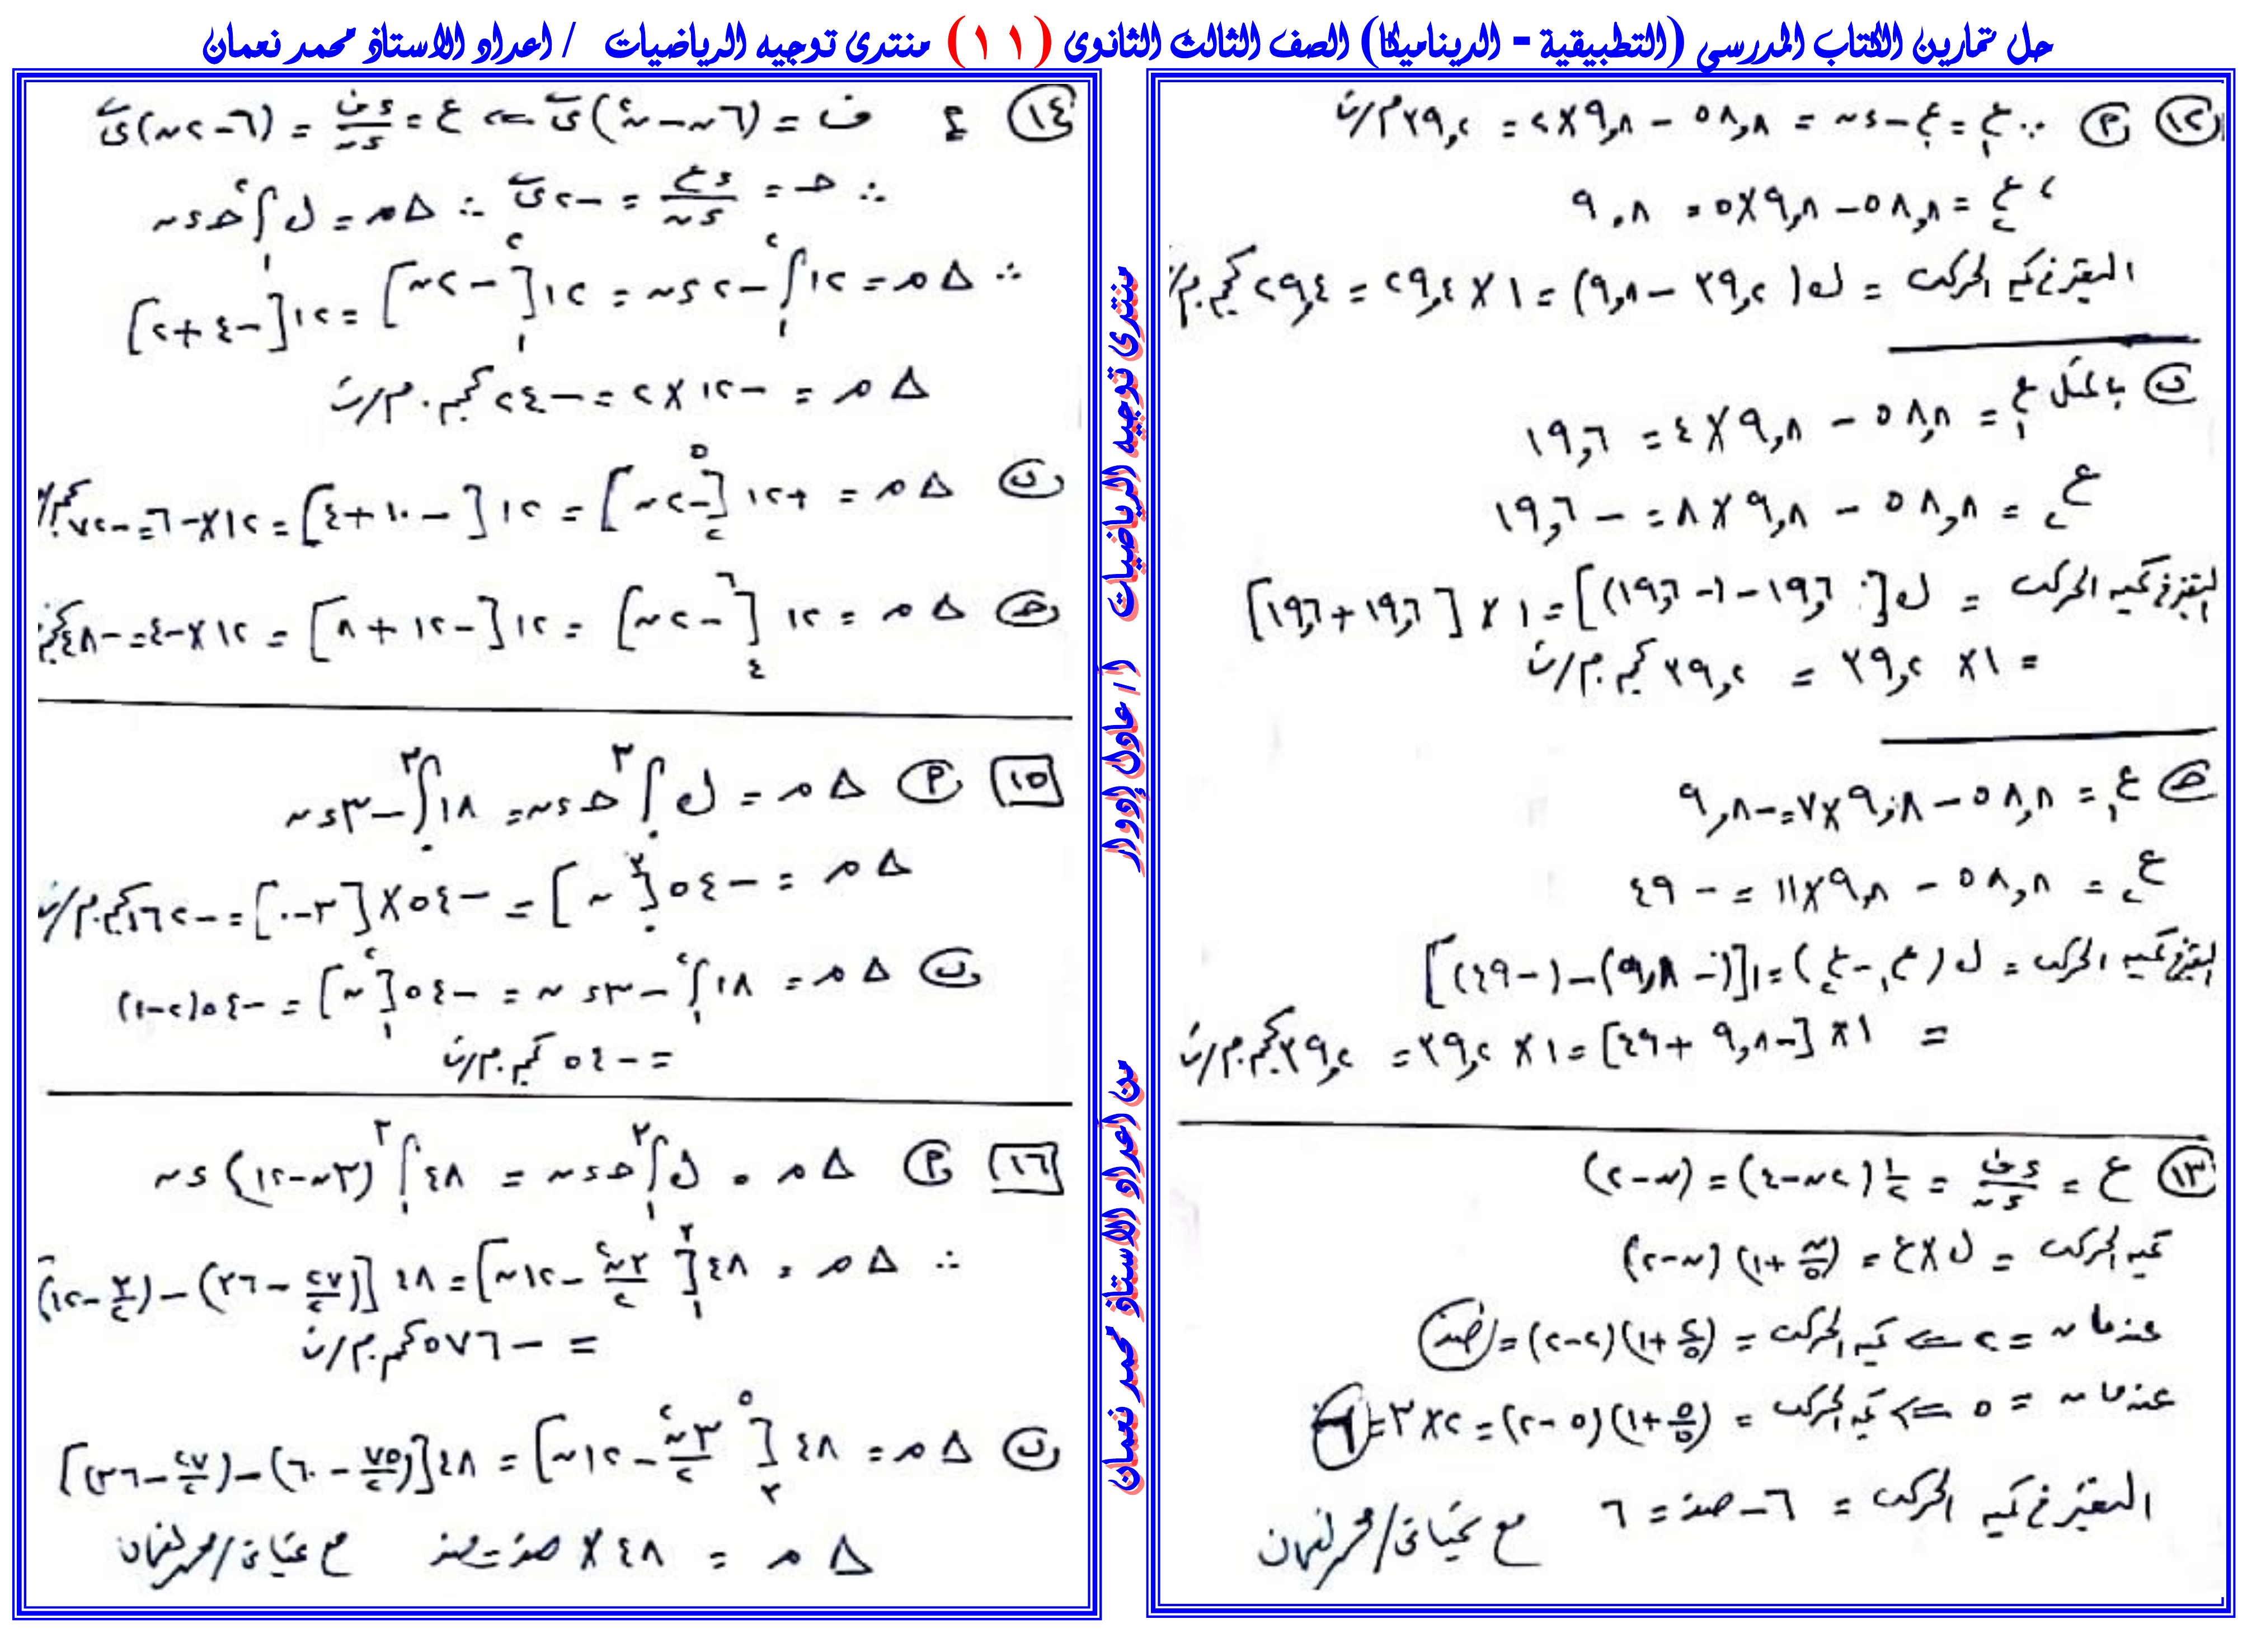 حل تمارين الكتاب المدرسي (التطبيقية - الديناميكا) الصف الثالث الثانوى (١١) منتدى توجيه الرياضيات / اعداد الاستاذ محمد نعمان
١٢ P ∵ ع١ = ع٠ - ٩,٨ × ٢ = ٣٩,٢ م/ث
، ع٢ = ٥٨,٨ - ٩,٨ × ٥ = ٩,٨
التغير في كمية الحركة = ك(٣٩,٢ - ٩,٨) = ١ × ٢٩,٤ = ٢٩,٤ كجم.م/
ب بالمثل ع١ = ٥٨,٨ - ٩,٨ × ٤ = ١٩,٦
ع٢ = ٥٨,٨ - ٩,٨ × ٨ = -١٩,٦
التغير في كمية الحركة = ك[١٩,٦ - (-١٩,٦)] = ١ × [١٩,٦ + ١٩,٦]
= ١ × ٣٩,٢ = ٣٩,٢ كجم.م/ث
حـ ع١ = ٥٨,٨ - ٩,٨ × ٧ = -٩,٨
ع٢ = ٥٨,٨ - ٩,٨ × ١١ = -٤٩
التغير في كمية الحركة = ك(ع١ - ع٢) = ١[(-٩,٨) - (-٤٩)]
= ١ × [-٩,٨ + ٤٩] = ١ × ٣٩,٢ = ٣٩,٢ كجم.م/ث
١٣ ع = ءف/ءن = ١/٢ (٢ن - ٤) = (ن - ٢)
كمية الحركة = ك × ع = (ن/٥ + ١)(ن - ٢)
عندما ن = ٢ ⇐ كمية الحركة = (٢/٥ + ١)(٢ - ٢) = صفر
عندما ن = ٥ ⇐ كمية الحركة = (٥/٥ + ١)(٥ - ٢) = ٢ × ٣ = ٦
التغير في كمية الحركة = ٦ - صفر = ٦ مع تحياتى/محمد نعمان
١٤ ف = (٦ن - ن²)ى ⇐ ع = ءف/ءن = (٦ - ٢ن)ى
∴ حـ = ءع/ءن = -٢ى ∴ Δم = ك ∫₁² حـ ءن
∴ Δم = ١٢ ∫₁² -٢ ءن = ١٢[-٢ن]₁² = ١٢[-٤ + ٢]
Δم = -١٢ × ٢ = -٢٤ كجم.م/ث
ب Δم = +١٢[-٢ن]₂⁵ = ١٢[-١٠ + ٤] = ١٢ × -٦ = -٧٢ كجم/
حـ Δم = ١٢[-٢ن]₄⁶ = ١٢[-١٢ + ٨] = ١٢ × -٤ = -٤٨ كجم
١٥ P Δم = ك ∫₀³ حـ ءن = ١٨ ∫₀³ -٣ ءن
Δم = -٥٤[ن]₀³ = -٥٤ × [٣ - ٠] = -١٦٢ كجم.م/ث
ب Δم = ١٨ ∫₁² -٣ ءن = -٥٤[ن]₁² = -٥٤(٢ - ١)
= -٥٤ كجم.م/ث
١٦ P Δم = ك ∫₁³ حـ ءن = ٤٨ ∫₁³ (٣ن - ١٢) ءن
∴ Δم = ٤٨[٣ن²/٢ - ١٢ن]₁³ = ٤٨[(٢٧/٢ - ٣٦) - (٣/٢ - ١٢)
= -٥٧٦ كجم.م/ث
ب Δم = ٤٨[٣ن²/٢ - ١٢ن]₃⁵ = ٤٨[(٧٥/٢ - ٦٠) - (٢٧/٢ - ٣٦)]
Δم = ٤٨ × صفر = صفر مع تحياتى/محمد نعمان
منتدى توجيه الرياضيات أ/ عادل إدوار
من اعداد الاستاذ محمد نعمان